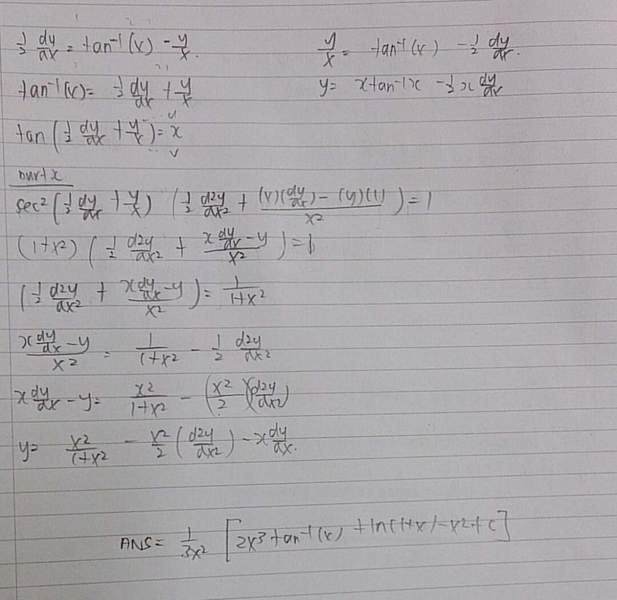 ½ dy/dx = tan⁻¹(x) - y/x.
y/x = tan⁻¹(x) - ½ dy/dx.
tan⁻¹(x) = ½ dy/dx + y/x
y = x tan⁻¹x - ½x dy/dx
tan(½ dy/dx + y/x) = x
Dwrt x
sec²(½ dy/dx + y/x) (½ d2y/dx² + ((x)(dy/dx) - (y)(1))/x²) = 1
(1+x²)(½ d2y/dx² + (x dy/dx - y)/x²) = 1
(½ d2y/dx² + (x dy/dx - y)/x²) = 1/(1+x²)
(x dy/dx - y)/x² = 1/(1+x²) - ½ d2y/dx²
x dy/dx - y = x²/(1+x²) - (x²/2)(d2y/dx2)
y = x²/(1+x²) - x²/2 (d2y/dx²) - x dy/dx.
ANS = 1/3x² [2x³ tan⁻¹(x) + ln(1+x) - x² + c]